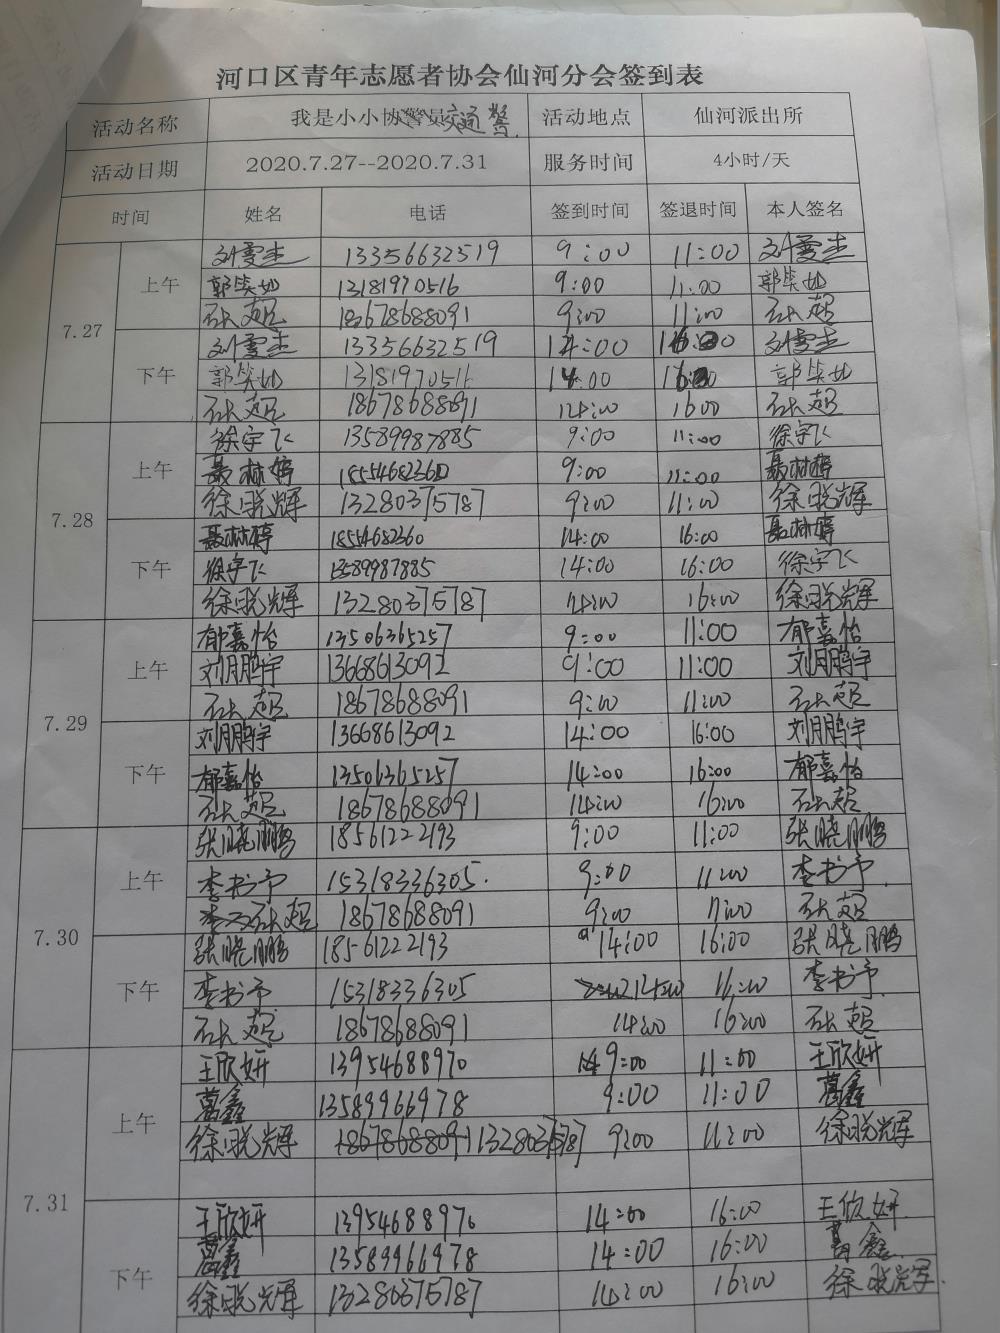 河口区青年志愿者协会仙河分会签到表
活动名称 我是小小协警员交通警 活动地点 仙河派出所
活动日期 2020.7.27--2020.7.31 服务时间 4小时/天
时间 姓名 电话 签到时间 签退时间 本人签名
7.27 上午 刘雪杰 13356632519 9:00 11:00 刘雪杰
郭 13181970516 9:00 11:00 郭
石大超 18678688091 9:00 11:00 石大超
下午 刘雪杰 13356632519 14:00 16:00 刘雪杰
郭 13181970516 14:00 16:00 郭
石大超 18678688091 14:00 16:00 石大超
7.28 上午 徐宇飞 13589987885 9:00 11:00 徐宇飞
聂林婷 18554682360 9:00 11:00 聂林婷
徐晓辉 13280375787 9:00 11:00 徐晓辉
下午 聂林婷 18554682360 14:00 16:00 聂林婷
徐宇飞 13589987885 14:00 16:00 徐宇飞
徐晓辉 13280375787 14:00 16:00 徐晓辉
7.29 上午 郁嘉怡 13506365257 9:00 11:00 郁嘉怡
刘月鹏宇 13668613092 9:00 11:00 刘月鹏宇
石大超 18678688091 9:00 11:00 石大超
下午 刘鹏宇 13668613092 14:00 16:00 刘月鹏宇
郁嘉怡 13506365257 14:00 16:00 郁嘉怡
石大超 18678688091 14:00 16:00 石大超
7.30 上午 张晓鹏 18561222193 9:00 11:00 张晓鹏
李书予 15318336305 9:00 11:00 李书予
石大超 18678688091 9:00 11:00 石大超
下午 张晓鹏 18561222193 14:00 16:00 张晓鹏
李书予 15318336305 14:00 16:00 李书予
石大超 18678688091 14:00 16:00 石大超
7.31 上午 王欣妍 13954688970 9:00 11:00 王欣妍
葛鑫 13589966978 9:00 11:00 葛鑫
徐晓辉 18678688091 13280375787 9:00 11:00 徐晓辉
下午 王欣妍 13954688970 14:00 16:00 王欣妍
葛鑫 13589966978 14:00 16:00 葛鑫
徐晓辉 13280375787 14:00 16:00 徐晓辉